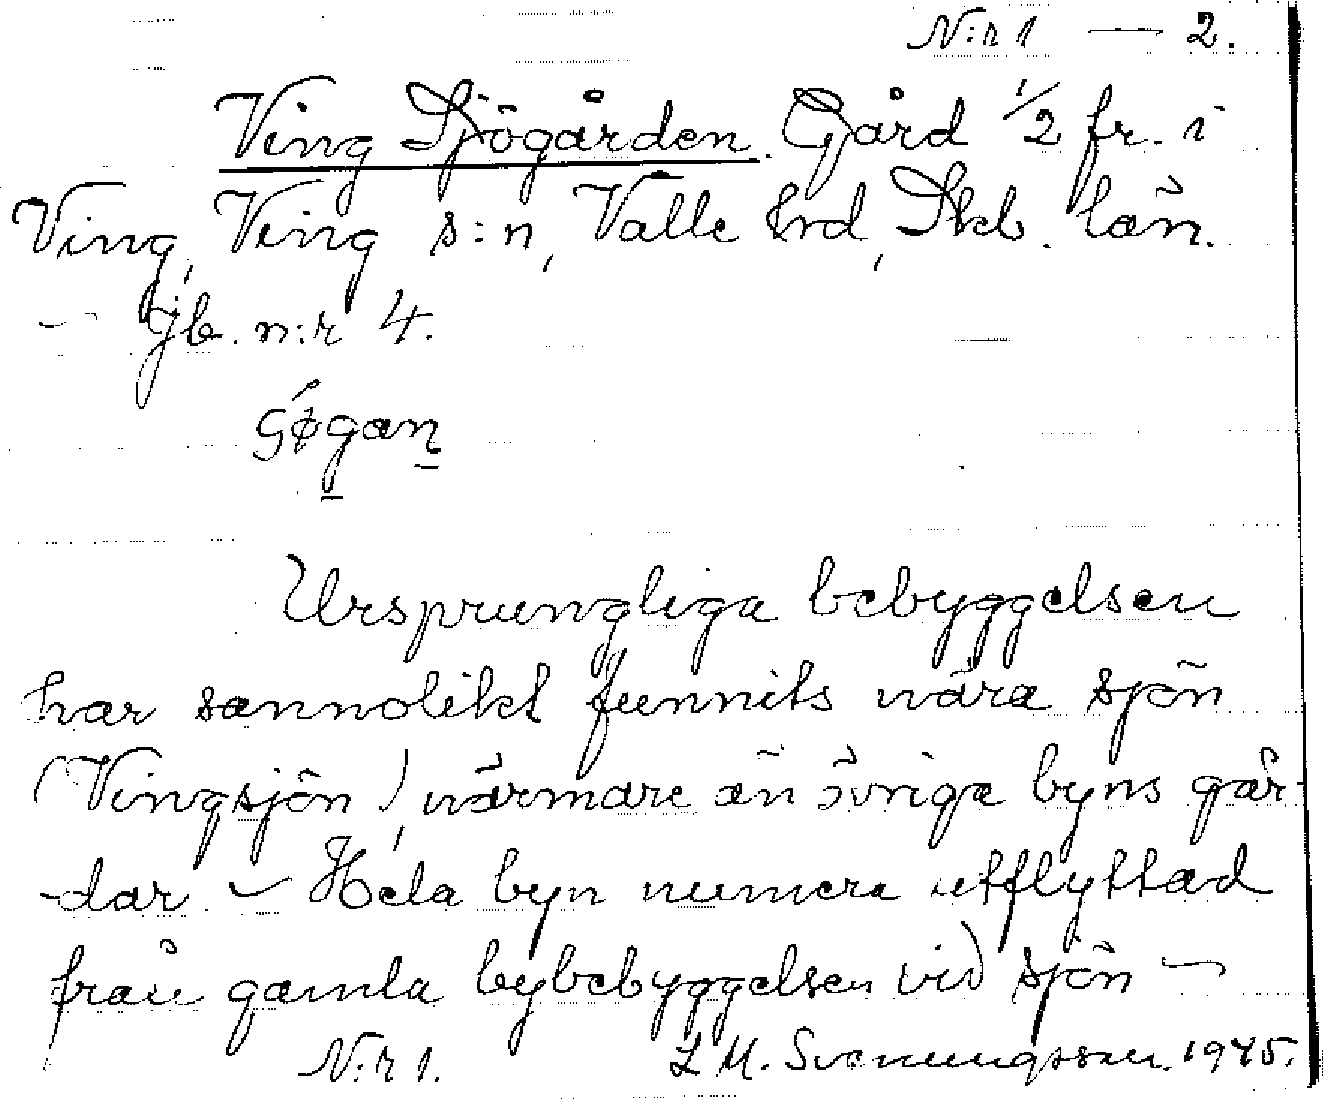 N:r 1 — 2.
Ving Sjögården. Gård 1/2 fr. i
Ving, Ving s:n, Valle hrd, Skb. län.
— Jb. n:r 4.
Ursprungliga bebyggelsen
har sannolikt funnits nära sjön
(Vingsjön), närmare än övriga byns går-
dar. — Hela byn numera utflyttad
från gamla bybebyggelsen vid sjön —
N:r 1. L M. Svenungsson. 1945.